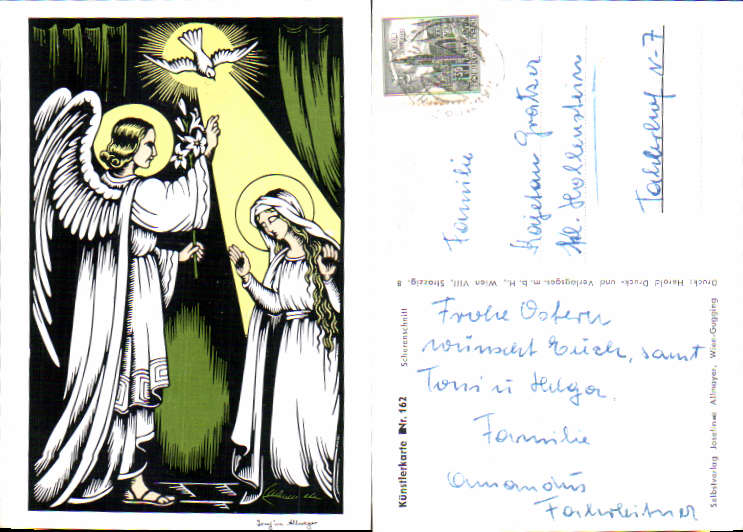 Josefine Allmayer
Familie
Kajetan Gratzer
Kl. Hollenstein
Künstlerkarte Nr. 162
Scherenschnitt
Frohe Ostern
wünscht Euch, samt
Toni u Helga.
Familie
Amandus
Druck: Harold Druck- und Verlagsges. m. b. H., Wien VIII, Strozzig. 8
Selbstverlag Josefine Allmayer, Wien-Gugging